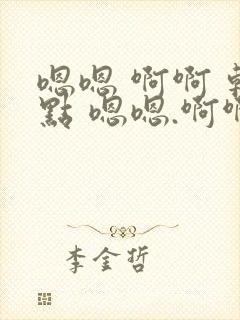 嗯嗯 啊啊 軟
點 嗯嗯.啊啊
李金哲